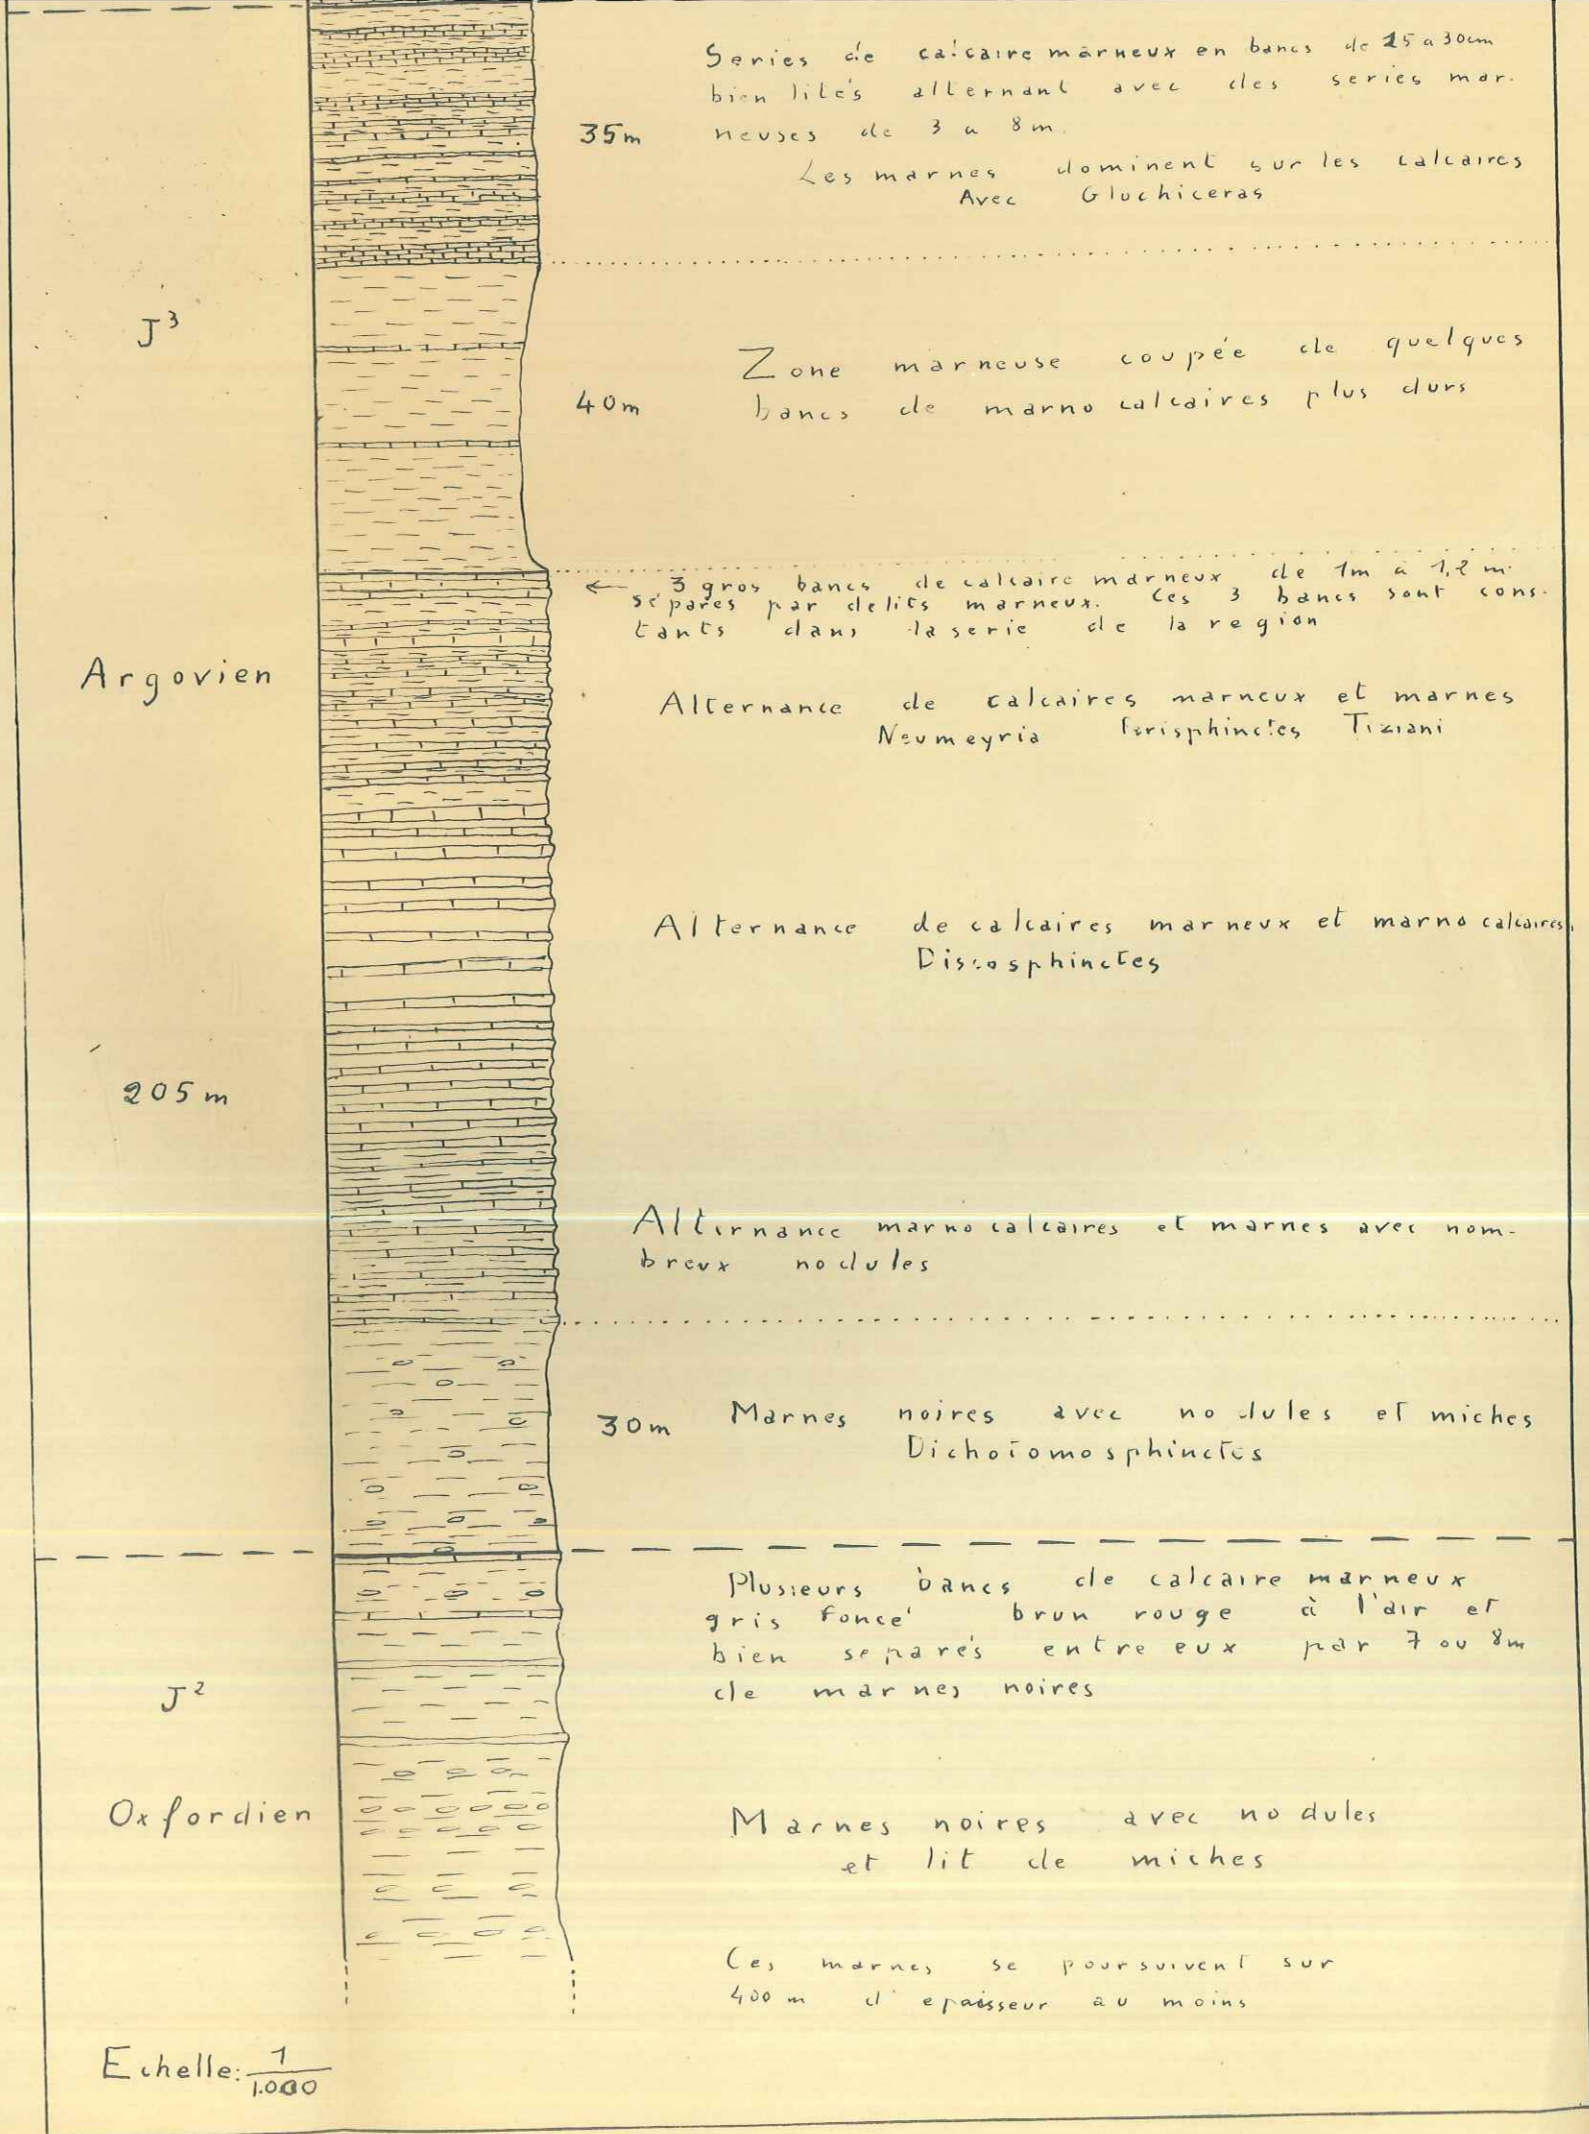 Series de calcaire marneux en bancs de 15 a 30cm
bien lités alternant avec des series mar-
35m neuses de 3 a 8m.
Les marnes dominent sur les calcaires
Avec Glochiceras
J3
Zone marneuse coupée de quelques
40m bancs de marno calcaires plus durs
← 3 gros bancs de calcaire marneux de 1m a 1,2 m.
séparés par delits marneux. Ces 3 bancs sont cons-
tants dans la serie de la region
Argovien
Alternance de calcaires marneux et marnes
Neumeyria Perisphinctes Tiziani
Alternance de calcaires marneux et marno calcaires.
Discosphinctes
205m
Alternance marno calcaires et marnes avec nom-
breux nodules
30m Marnes noires avec nodules et miches
Dichotomosphinctes
Plusieurs bancs de calcaire marneux
gris foncé brun rouge à l'air et
bien separés entre eux par 7 ou 8m
J2 de marnes noires
Oxfordien
Marnes noires avec nodules
et lit de miches
Ces marnes se poursuivent sur
400m d'epaisseur au moins
Echelle: 1/1.000